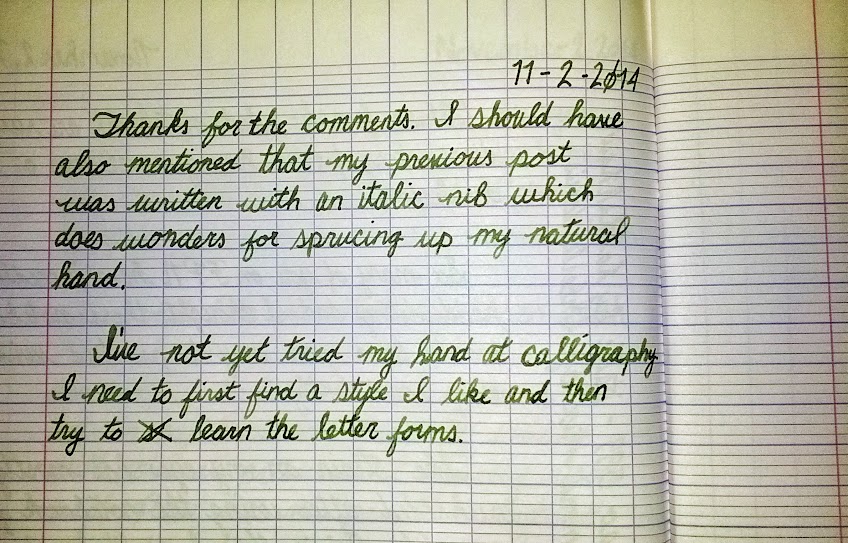 11-2-2014
Thanks for the comments. I should have
also mentioned that my previous post
was written with an italic nib which
does wonders for sprucing up my natural
hand.
I've not yet tried my hand at calligraphy.
I need to first find a style I like and then
try to learn the letter forms.